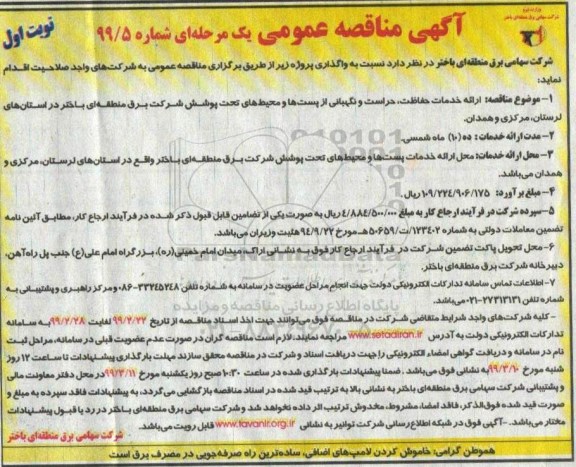 وزارت نیرو
شرکت سهامی برق منطقه‌ای باختر
نوبت اول
آگهی مناقصه عمومی یک مرحله‌ای شماره ۹۹/۵
شرکت سهامی برق منطقه‌ای باختر در نظر دارد نسبت به واگذاری پروژه زیر از طریق برگزاری مناقصه عمومی به شرکت‌های واجد صلاحیت اقدام
نماید:
۱- موضوع مناقصه: ارائه خدمات حفاظت، حراست و نگهبانی از پست‌ها و محیط‌های تحت پوشش شرکت برق منطقه‌ای باختر در استان‌های
لرستان، مرکزی و همدان.
۲- مدت ارائه خدمات: ده (۱۰) ماه شمسی.
۳- محل ارائه خدمات: محل ارائه خدمات پست‌ها و محیط‌های تحت پوشش شرکت برق منطقه‌ای باختر واقع در استان‌های لرستان، مرکزی و
همدان می‌باشد.
۴- مبلغ برآورد: ۱۰۹/۲۲۴/۹۰۶/۱۷۵ ریال.
۵- سپرده شرکت در فرآیند ارجاع کار به مبلغ ۴/۸۸۴/۵۰۰/۰۰۰ ریال به صورت یکی از تضامین قابل قبول ذکر شده در فرآیند ارجاع کار، مطابق آئین نامه
تضمین معاملات دولتی به شماره ۱۲۳۴۰۲/ت۵۰۶۵۹هـ مورخ ۹۴/۹/۲۲ هیئت وزیران می‌باشد.
۶- محل تحویل پاکت تضمین شرکت در فرآیند ارجاع کار فوق به نشانی اراک، میدان امام خمینی(ره)، بزرگراه امام علی(ع) جنب پل راه‌آهن،
دبیرخانه شرکت برق منطقه‌ای باختر.
۷- اطلاعات تماس سامانه تدارکات الکترونیکی دولت جهت انجام مراحل عضویت در سامانه به شماره تلفن ۳۳۲۴۵۲۴۸-۰۸۶ و مرکز راهبری و پشتیبانی به
شماره تلفن ۲۷۳۱۳۱۳۱-۰۲۱ می‌باشد.
- کلیه شرکت‌های واجد شرایط متقاضی شرکت در مناقصه فوق می‌توانند جهت اخذ اسناد مناقصه از تاریخ ۹۹/۲/۲۲ لغایت ۹۹/۲/۲۸ به سامانه
تدارکات الکترونیکی دولت به آدرس www.setadiran.ir مراجعه نمایند. لازم است مناقصه گران در صورت عدم عضویت قبلی در سامانه، مراحل ثبت
نام در سامانه و دریافت گواهی امضاء الکترونیکی را جهت دریافت اسناد و شرکت در مناقصه محقق سازند مهلت بارگذاری پیشنهادات تا ساعت ۱۲ روز
شنبه مورخ ۹۹/۳/۱۰ به نشانی فوق می‌باشد. ضمنا پیشنهادات بارگذاری شده در ساعت ۱۰:۳۰ صبح روز یکشنبه مورخ ۹۹/۳/۱۱ در محل دفتر معاونت مالی
و پشتیبانی شرکت سهامی برق منطقه‌ای باختر به نشانی بالا به ترتیب قید شده در اسناد مناقصه بازگشایی می‌گردد. به پیشنهادات فاقد سپرده به مبلغ و
صورت قید شده فوق‌الذکر، فاقد امضا، مشروط، مخدوش ترتیب اثر داده نخواهد شد و شرکت سهامی برق منطقه‌ای باختر در رد یا قبول پیشنهادات
مختار می‌باشد. - آگهی فوق در شبکه اطلاع رسانی شرکت توانیر به نشانی www.tavanir.org.ir قابل رویت می‌باشد.
شرکت سهامی برق منطقه‌ای باختر
هموطن گرامی: خاموش کردن لامپ‌های اضافی، ساده‌ترین راه صرفه‌جویی در مصرف برق است
پایگاه اطلاع رسانی مناقصه و مزایده